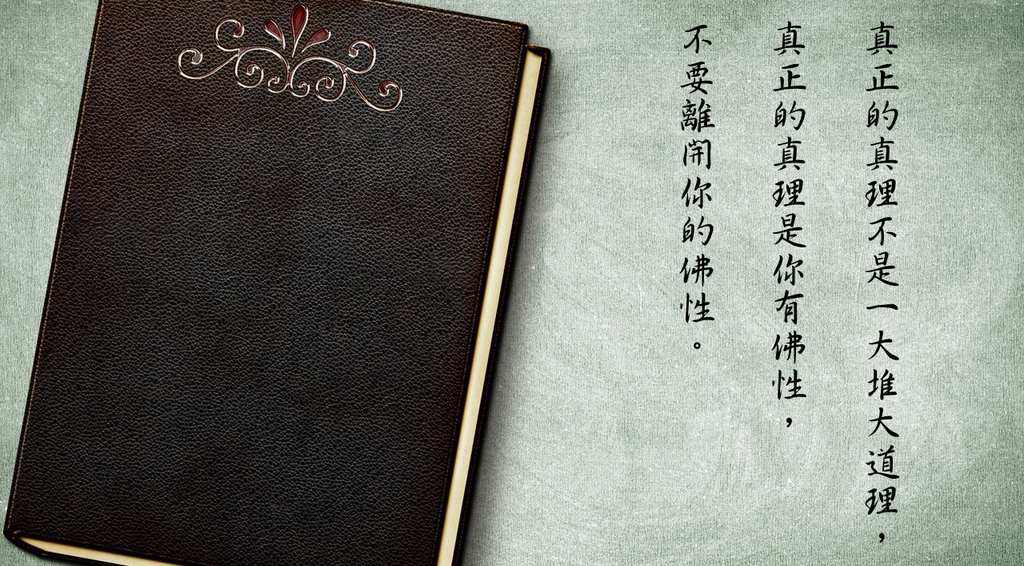 真正的真理不是一大堆大道理，
真正的真理是你有佛性，
不要離開你的佛性。